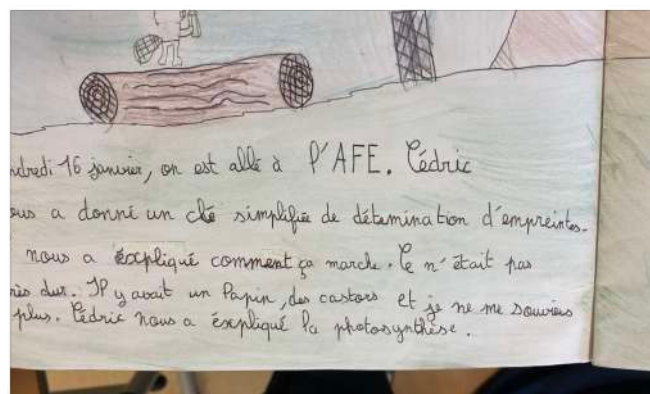 ndredi 16 janvier, on est allé à l'AFE. Cédric
ous a donné un clé simplifiée de détemination d'empreintes.
nous a éxpliqué comment ça marche. Ce n'était pas
rès dur. Il y avait un lapin, des castors et je ne me souviens
plus. Cédric nous a éxpliqué la photosynthèse.